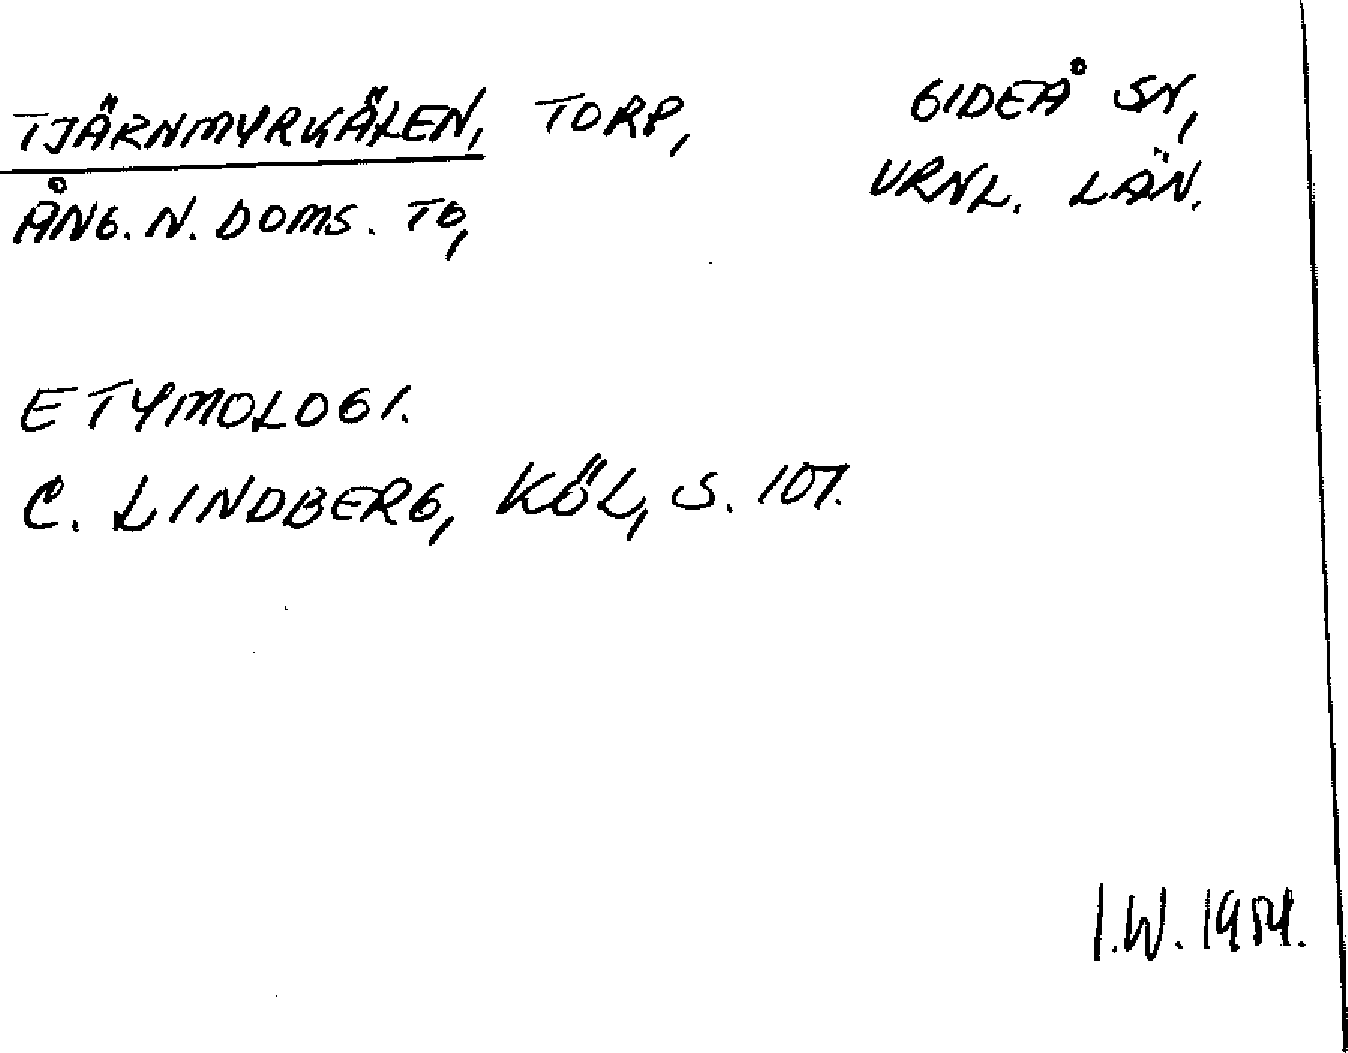 TJÄRNMYRKÄLEN, TORP,
ÅNG. N. DOMS. TG,
GIDEÅ SN,
VRNL. LÄN.
ETYMOLOGI.
C. LINDBERG, KÖL, S. 107.
I.W. 1954.